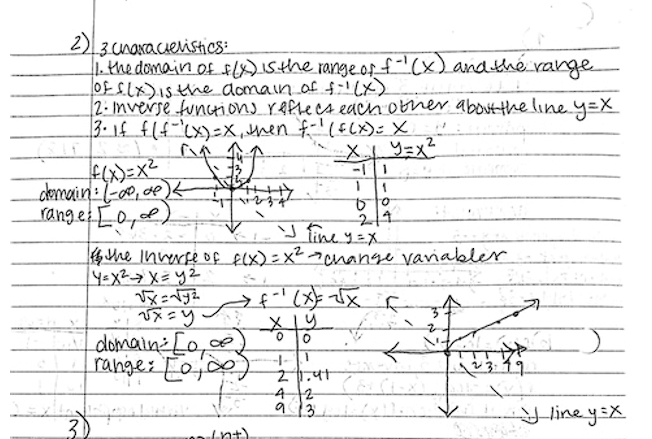 2) 3 characteristics:
1. the domain of f(x) is the range of f⁻¹(x) and the range
of f(x) is the domain of f⁻¹(x)
2. Inverse functions reflect each other about the line y=x
3. if f(f⁻¹(x)=x, then f⁻¹(f(x)= x
x | y=x²
-1 | 1
1 | 1
0 | 0
2 | 4
f(x)=x²
domain: (-∞,∞)
range: [0,∞)
line y=x
the inverse of f(x)=x² → change variables
y=x² → x=y²
√x=√y²
√x=y → f⁻¹(x)=√x
domain: [0,∞)
range: [0,∞)
x | y
0 | 0
1 | 1
2 | 1.41
4 | 2
9 | 3
3
2
1
1 2 3 4 9
line y=x
3)